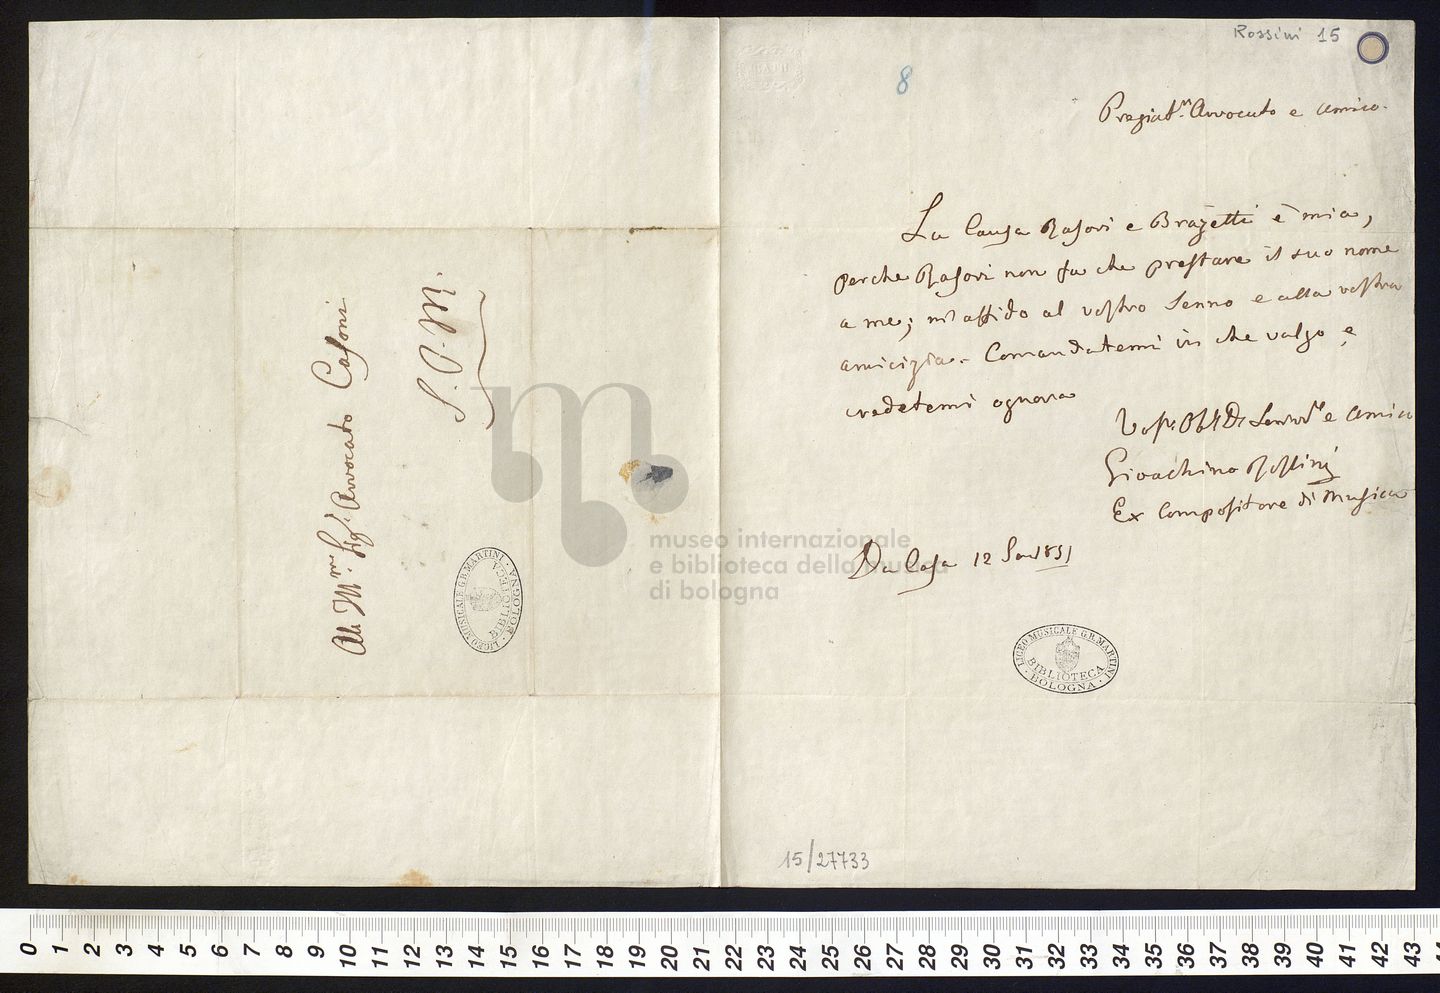 Al Mto Sigr Avvocato Casoni
S. P. M.
LICEO MUSICALE G.B. MARTINI
BIBLIOTECA
BOLOGNA
Rossini 15
8
Pregiatm. Avvocato e amico.
La Causa e è mia,
perche non fa che prestare il suo nome
a me; m'affido al vostro Senno e alla vostra
amicizia. Comandatemi in che valgo, e
credetemi ognora
Servre e Amico
Gioachino Rossini
Ex Compositore di Musica
Da Casa 12 1851
LICEO MUSICALE G.B. MARTINI
BIBLIOTECA
BOLOGNA
museo internazionale
e biblioteca della musica
di bologna
15/27733
0 1 2 3 4 5 6 7 8 9 10 11 12 13 14 15 16 17 18 19 20 21 22 23 24 25 26 27 28 29 30 31 32 33 34 35 36 37 38 39 40 41 42 43